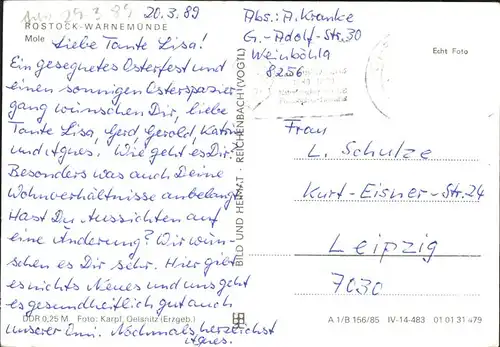 20.3.89
ROSTOCK-WARNEMÜNDE
Mole
Liebe Tante Lisa!
Ein gesegnetes Osterfest und
einen sonnigen Osterspazier
gang wünschen Dir, liebe
Tante Lisa, Gerd, Gerold, Katrin
und Agnes. Wie geht es Dir?
Besonders was auch Deine
Wohnverhältnisse anbelangt.
Hast Du Aussichten auf
eine Änderung? Wir wün-
schen es Dir sehr. Hier gibt
es nichts Neues und uns geht
es gesundheitlich gut auch
unserer Omi. Nochmals herzlichst
Agnes.
DDR 0,25 M Foto: Karpf, Oelsnitz (Erzgeb.)
BILD UND HEIMAT REICHENBACH (VOGTL)
Abs.: A. Kranke
G.-Adolf-Str. 30
Weinböhla
8256
Echt Foto
Frau
L. Schulze
Kurt-Eisner-Str. 24
Leipzig
7030
A 1/B 156/85 IV-14-483 01 01 31 479